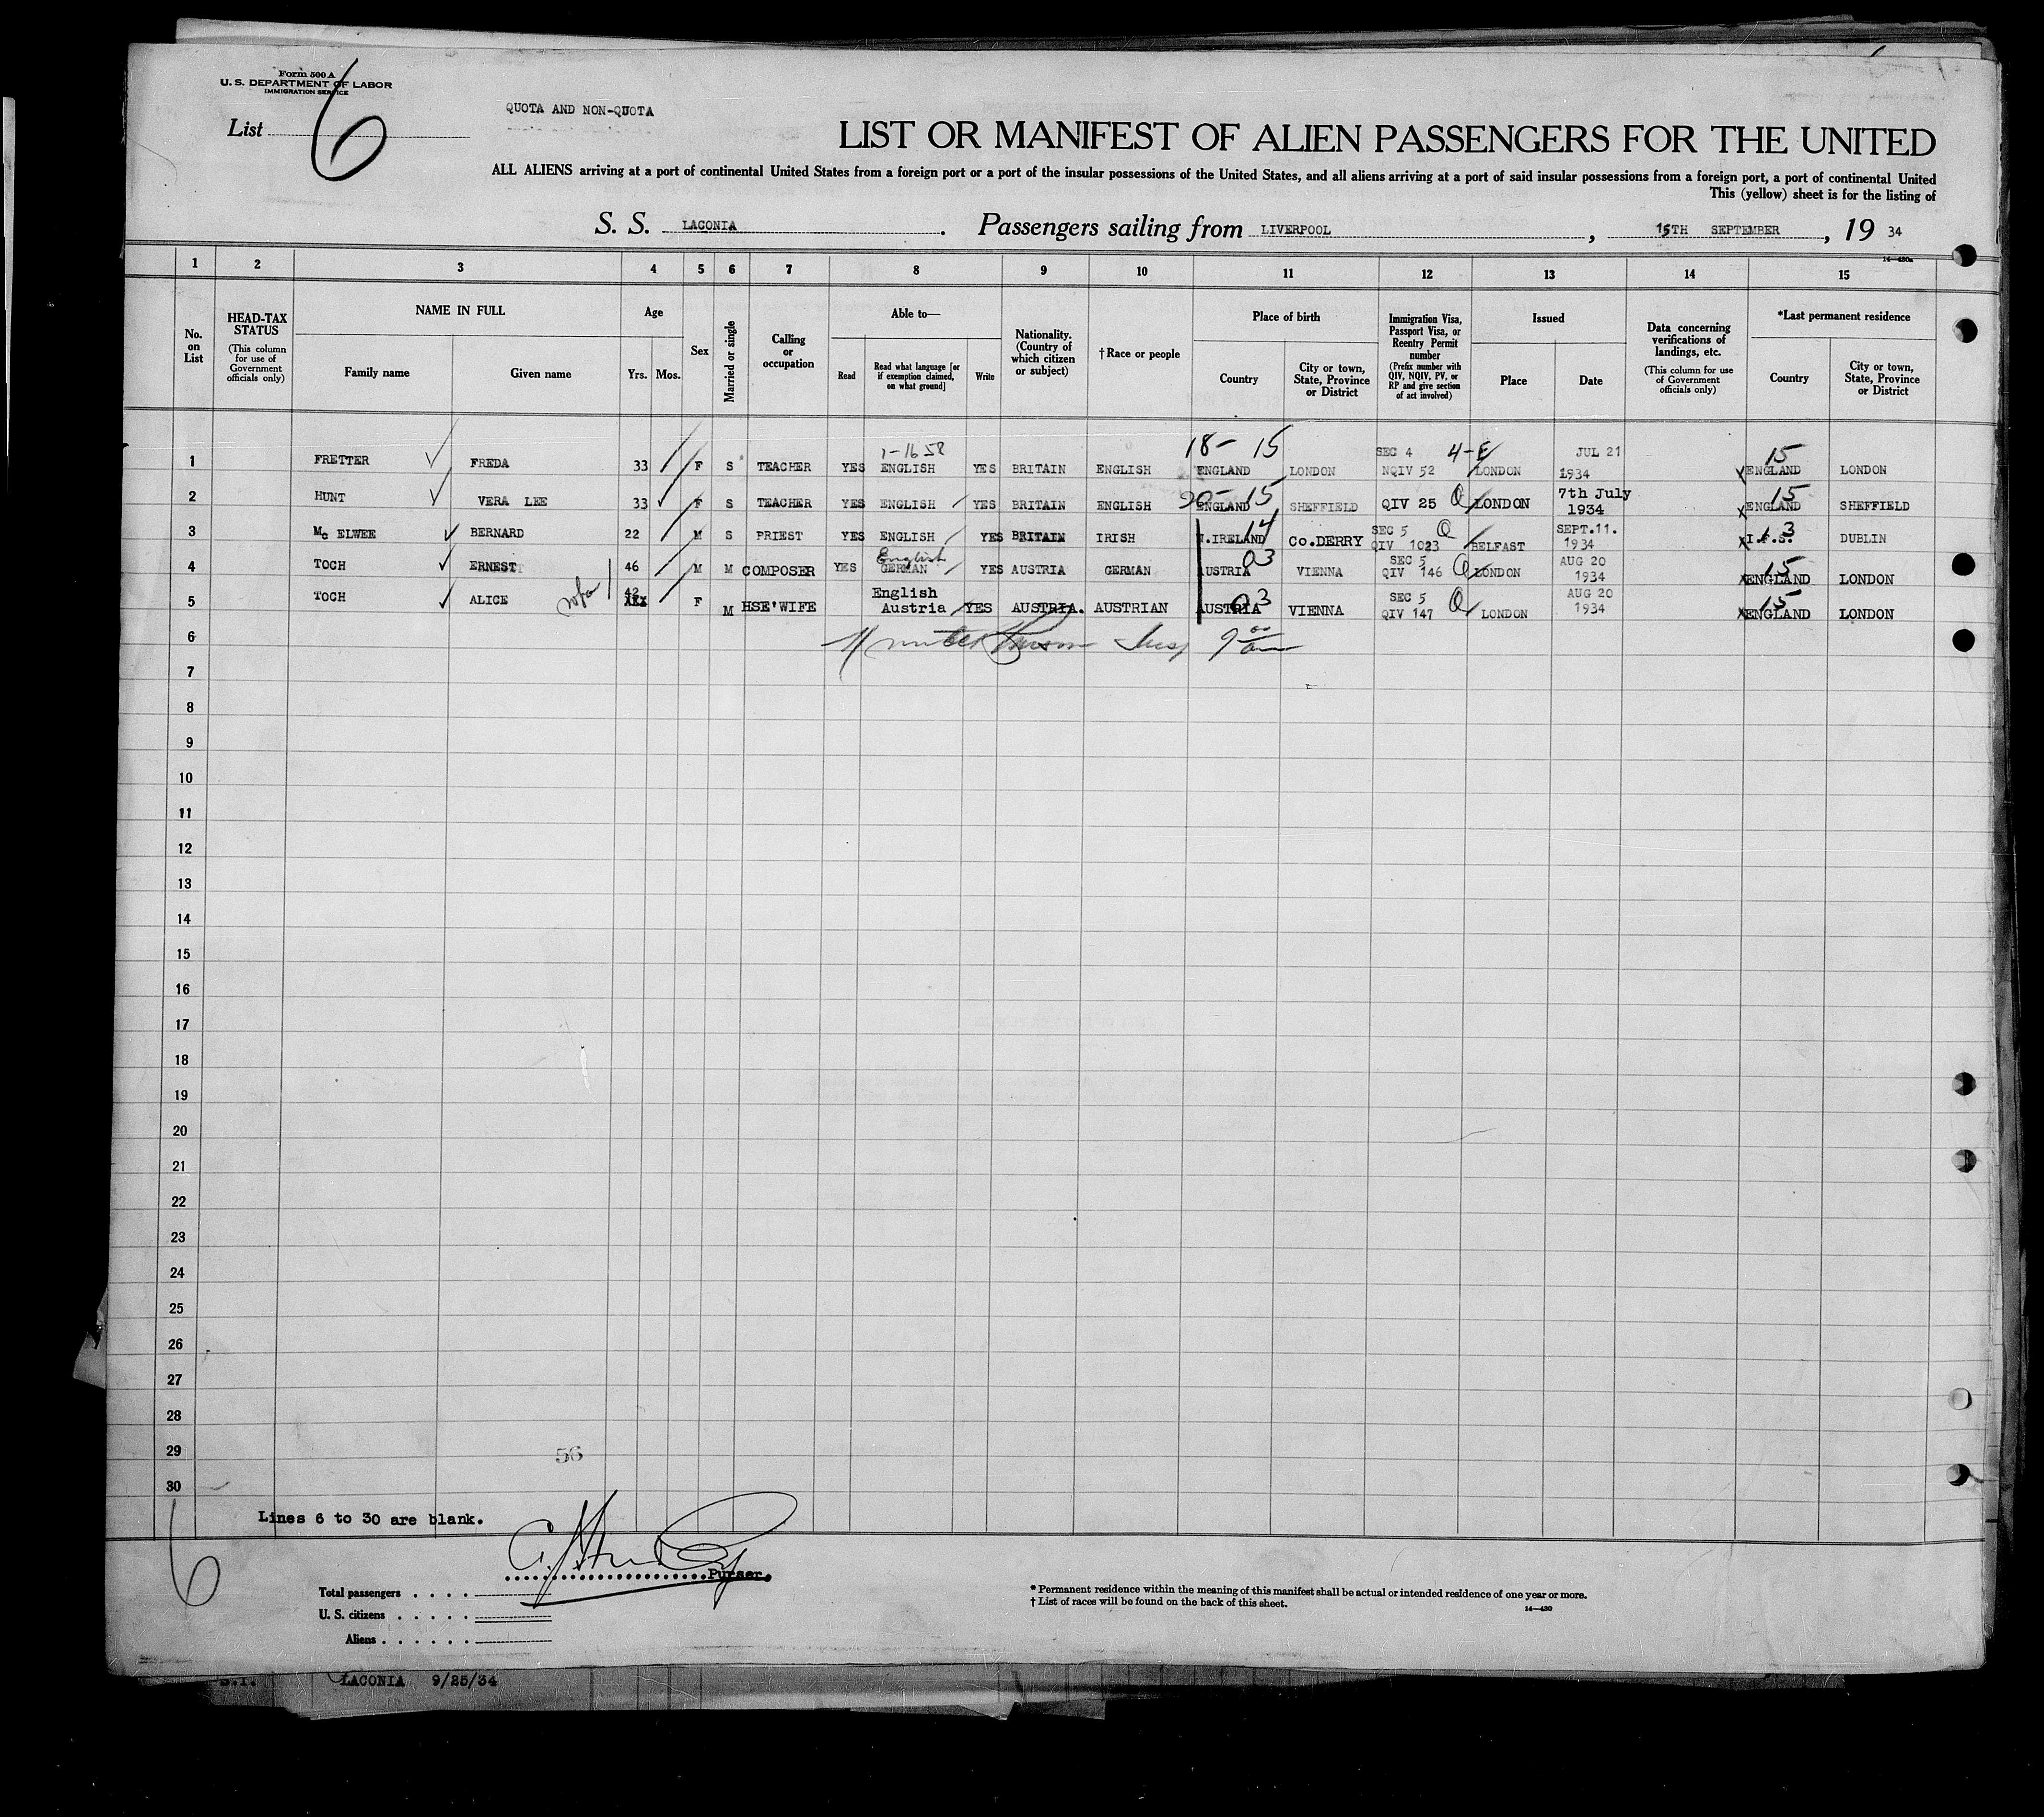 Form 500 A
U. S. DEPARTMENT OF LABOR
IMMIGRATION SERVICE
List 6
QUOTA AND NON-QUOTA
LIST OR MANIFEST OF ALIEN PASSENGERS FOR THE UNITED
ALL ALIENS arriving at a port of continental United States from a foreign port or a port of the insular possessions of the United States, and all aliens arriving at a port of said insular possessions from a foreign port, a port of continental United
This (yellow) sheet is for the listing of
S. S. LACONIA. Passengers sailing from LIVERPOOL, 15TH SEPTEMBER, 19 34
14-430a
1 2 3 4 5 6 7 8 9 10 11 12 13 14 15
No. on List
HEAD-TAX STATUS (This column for use of Government officials only)
NAME IN FULL
Family name
Given name
Age
Yrs. Mos.
Sex
Married or single
Calling or occupation
Able to—
Read
Read what language [or if exemption claimed, on what ground]
Write
Nationality. (Country of which citizen or subject)
†Race or people
Place of birth
Country
City or town, State, Province or District
Immigration Visa, Passport Visa, or Reentry Permit number (Prefix number with QIV, NQIV, PV, or RP and give section of act involved)
Issued
Place
Date
Data concerning verifications of landings, etc. (This column for use of Government officials only)
*Last permanent residence
Country
City or town, State, Province or District
1-16 58 18- 15 SEC 4 4-E JUL 21 15
1 FRETTER FREDA 33 F S TEACHER YES ENGLISH YES BRITAIN ENGLISH ENGLAND LONDON NQIV 52 LONDON 1934 ENGLAND LONDON
20- 15 7th July 15
2 HUNT VERA LEE 33 F S TEACHER YES ENGLISH YES BRITAIN ENGLISH ENGLAND SHEFFIELD QIV 25 Q LONDON 1934 ENGLAND SHEFFIELD
14 SEC 5 Q SEPT.11. 3
3 Mc ELWEE BERNARD 22 M S PRIEST YES ENGLISH YES BRITAIN IRISH N.IRELAND Co.DERRY QIV 1023 BELFAST 1934 I.F.S. DUBLIN
English 03 SEC 5 AUG 20 15
4 TOCH ERNEST 46 M M COMPOSER YES GERMAN YES AUSTRIA GERMAN AUSTRIA VIENNA QIV 146 Q LONDON 1934 ENGLAND LONDON
42 English 03 SEC 5 Q AUG 20 15
5 TOCH ALICE XXX F M HSE'WIFE Austria YES AUSTRIA. AUSTRIAN AUSTRIA VIENNA QIV 147 LONDON 1934 ENGLAND LONDON
6
7
8
9
10
11
12
13
14
15
16
17
18
19
20
21
22
23
24
25
26
27
28
29 56
30
Lines 6 to 30 are blank.
6
Purser.
Total passengers . . . .
U. S. citizens . . . . .
Aliens . . . . . .
* Permanent residence within the meaning of this manifest shall be actual or intended residence of one year or more.
† List of races will be found on the back of this sheet.
14-430
S.I. LACONIA 9/25/34